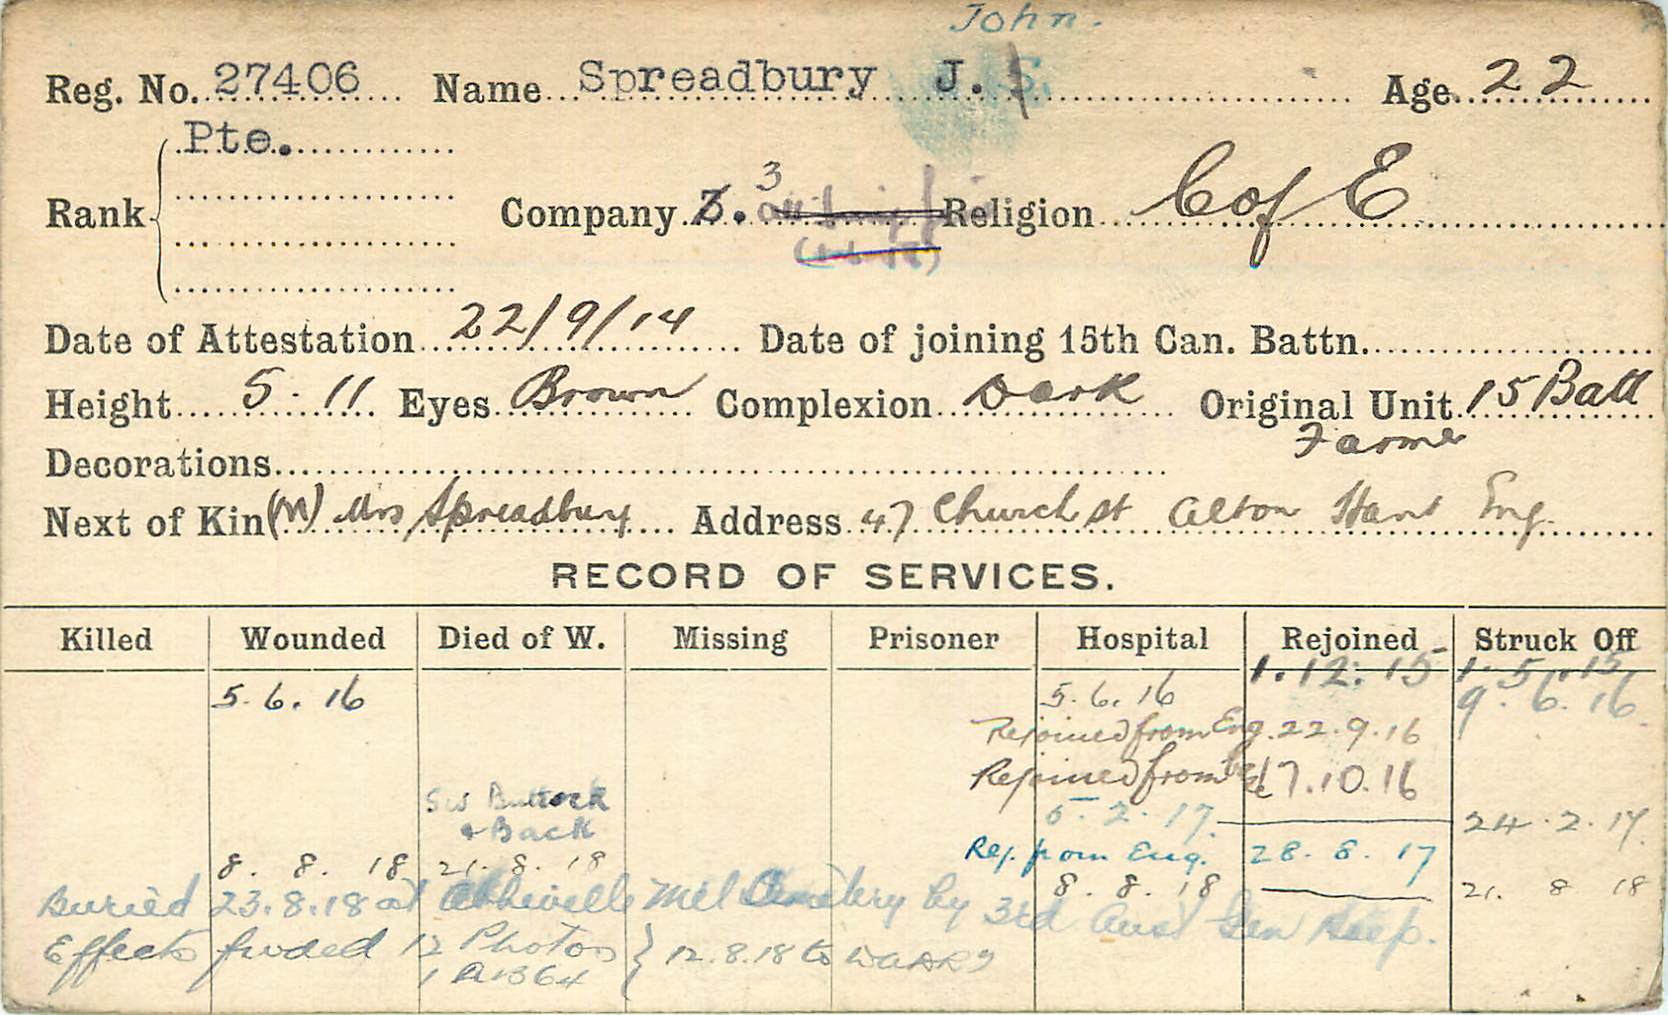 John.
Reg. No. 27406 Name Spreadbury J. S. Age 22
Pte.
3
Rank Company 3. Religion C of E
Date of Attestation 22/9/14 Date of joining 15th Can. Battn.
Height 5 - 11 Eyes Brown Complexion Dark Original Unit 15 Batt
Farmer
Decorations
Next of Kin (M) Mrs Spreadbury Address 47 Church st Alton Hant Eng.
RECORD OF SERVICES.
Killed Wounded Died of W. Missing Prisoner Hospital Rejoined Struck Off
1.12.15 1.5.15
5.6.16 5.6.16 9.6.16
Rejoined from Eng. 22.9.16
Rejoined from 7.10.16
SW Buttock 5.2.17. 24.2.17
& Back
Rej. from Eng. 28.8.17
8.8.18 21.8.18 8.8.18 21.8.18
Buried 23.8.18 at Abbeville Mil Cemetery by 3rd Aust Gen Hosp.
Effects fwded 12 Photos } 12.8.18 to
1 AB64